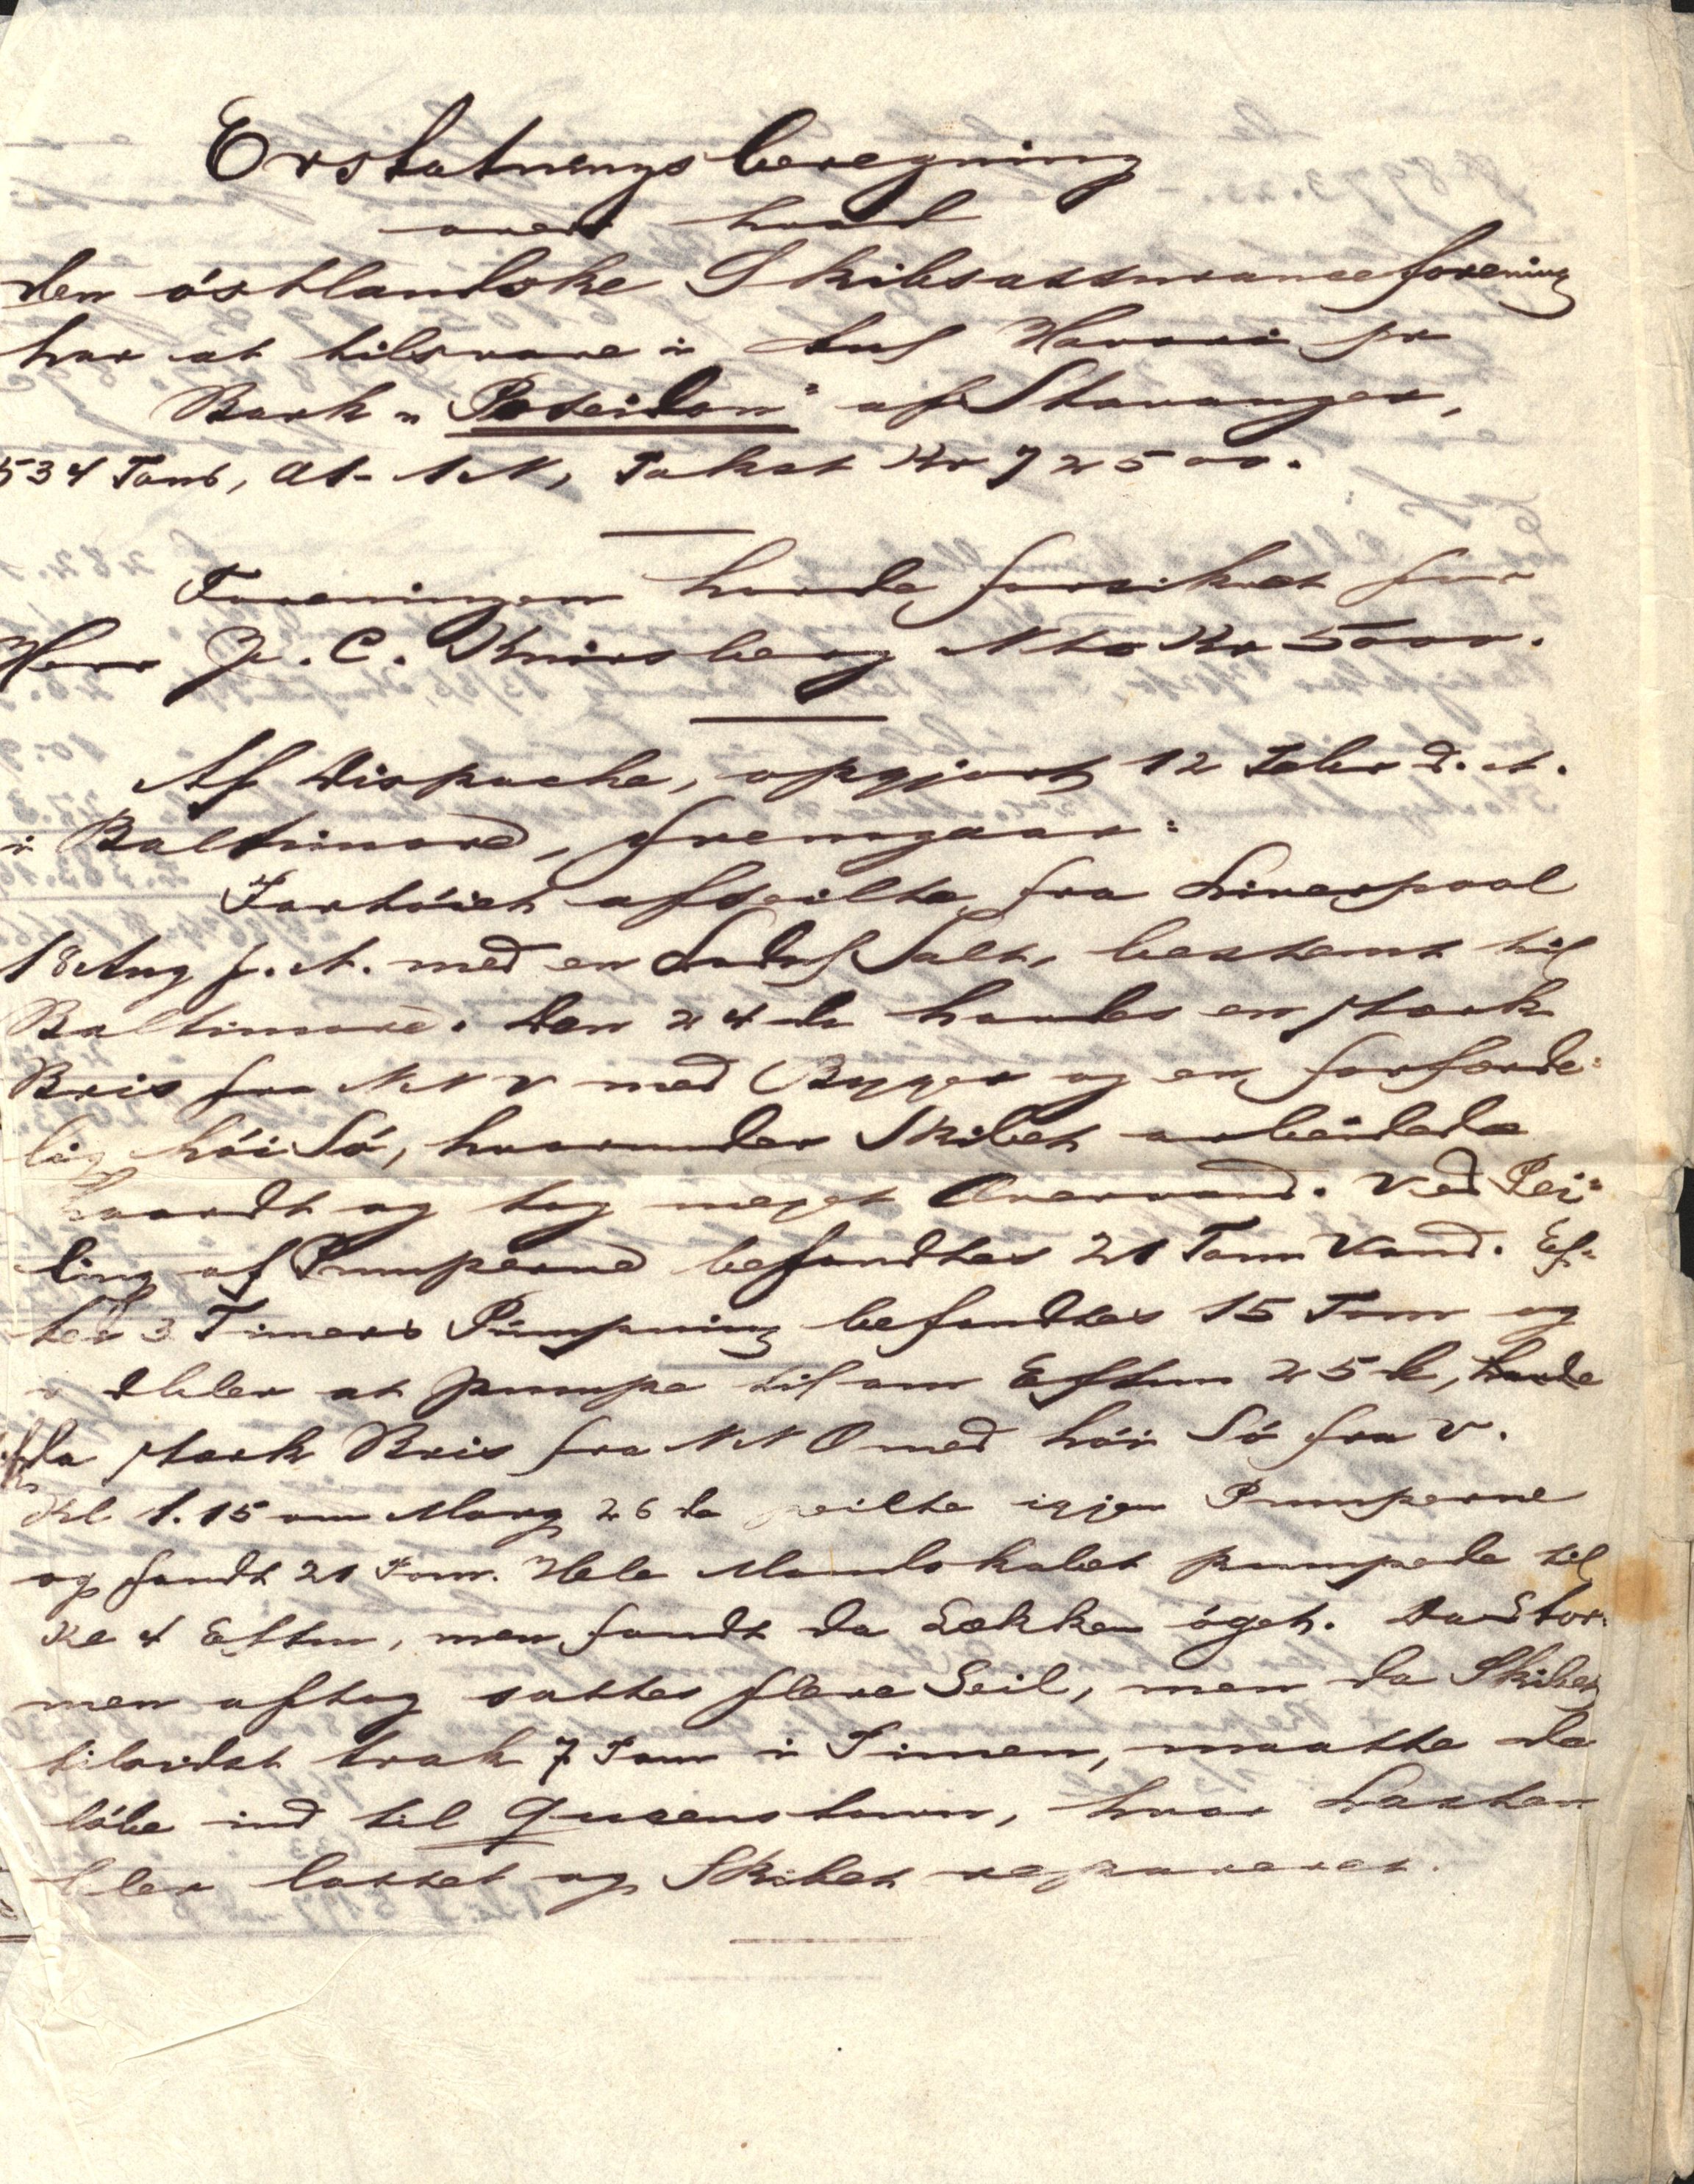 Erstatningsberegning
over hvad
den östlandske Skibsassuranceforening
har at tilsvare i Anl Havari pr
Bark „Poseidon" af Stavanger,
534 Tons, A1- 1.N, Takst Kr 72500.
Foreningen havde forsikret for
Herr J. C. Nto Kr 5000.
Af Dispache, opgjort 12 Febr d. A.
i Baltimore, fremgaar:
Fartöiet afseilte fra Liverpool
18 Aug f. A. med en Ladn Salt, bestemt til
Baltimore. Den 24 da havdes en stærk
Bris fra NNV med Byger og en forfærde=
lig höi Sö, hvorunder Skibet arbeidede
haardt og tog meget Overvand. Ved Pei=
ling af Pumperne befandtes 21 Tom Vand. Ef=
ter 3 Timers Pumpning befandtes 15 Tom og
at pumpe til om Eftm 25 d, havde
da stærk Bris fra NNO med höi Sö fra V.
Kl 1.15 om Morg 26 da peilte igjen Pumperne
og fandt 21 Tom. Hele Mandskabet pumpede til
Kl 4 Eftm, men fandt da Lækken öget. Da Stor=
men aftog sattes flere Seil, men da Skibet
tilsidst trak 7 Tom i Timen, maatte de
löbe ind til Queenstown, hvor Lasten
blev losset og Skibet repareret.